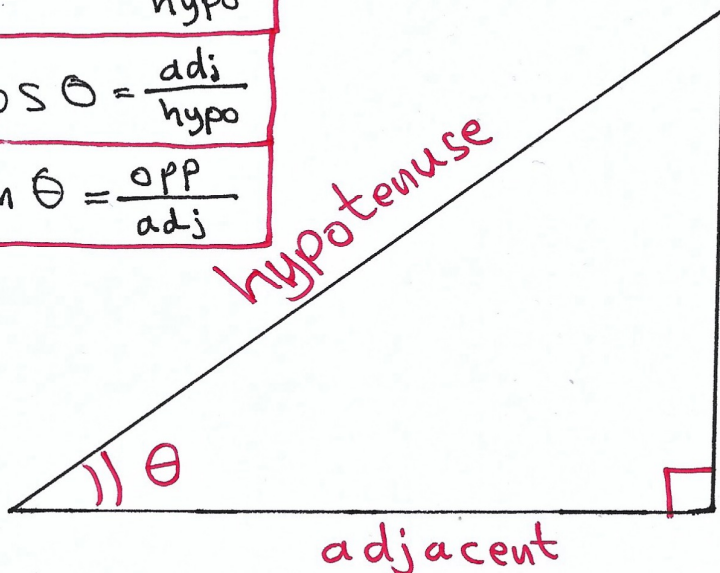 hypo
os θ = adj/hypo
n θ = opp/adj
hypotenuse
θ
adjacent